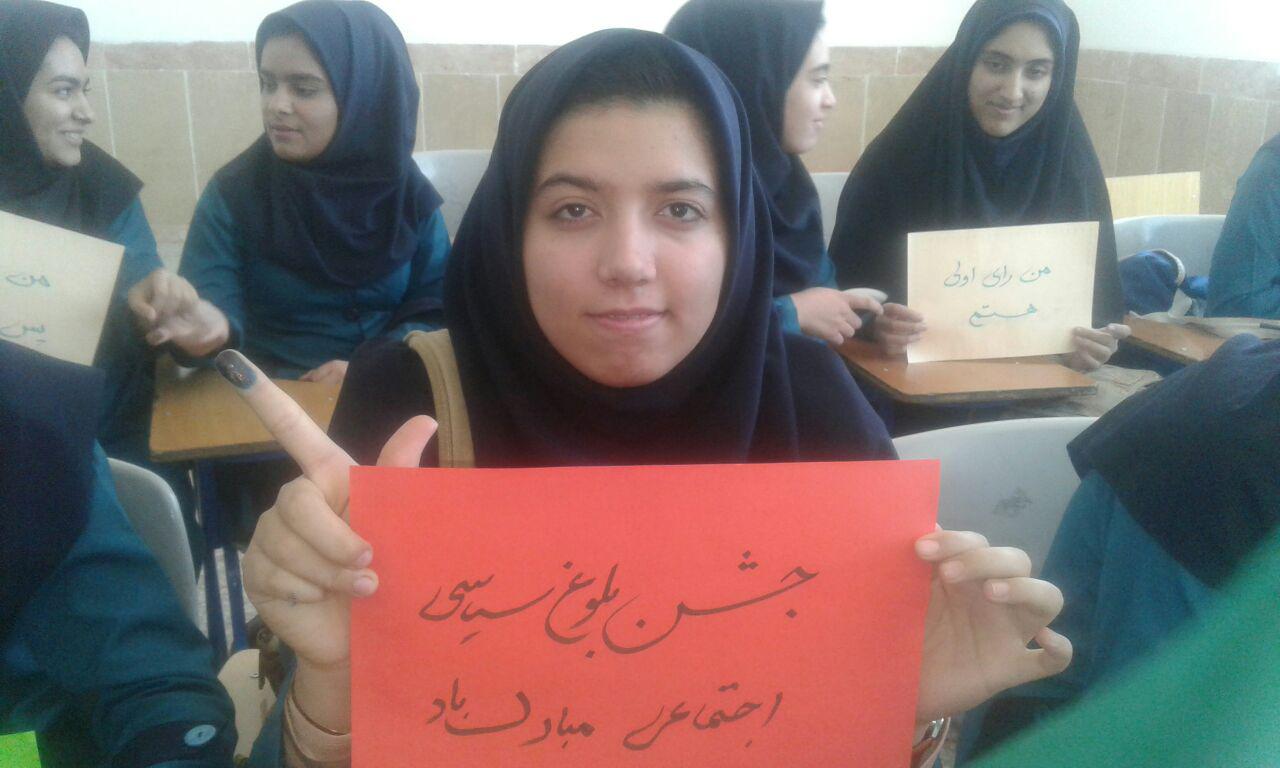 جشن بلوغ سیاسی
اجتماعی مبارک باد
من رای اولی
هستم
من
پس